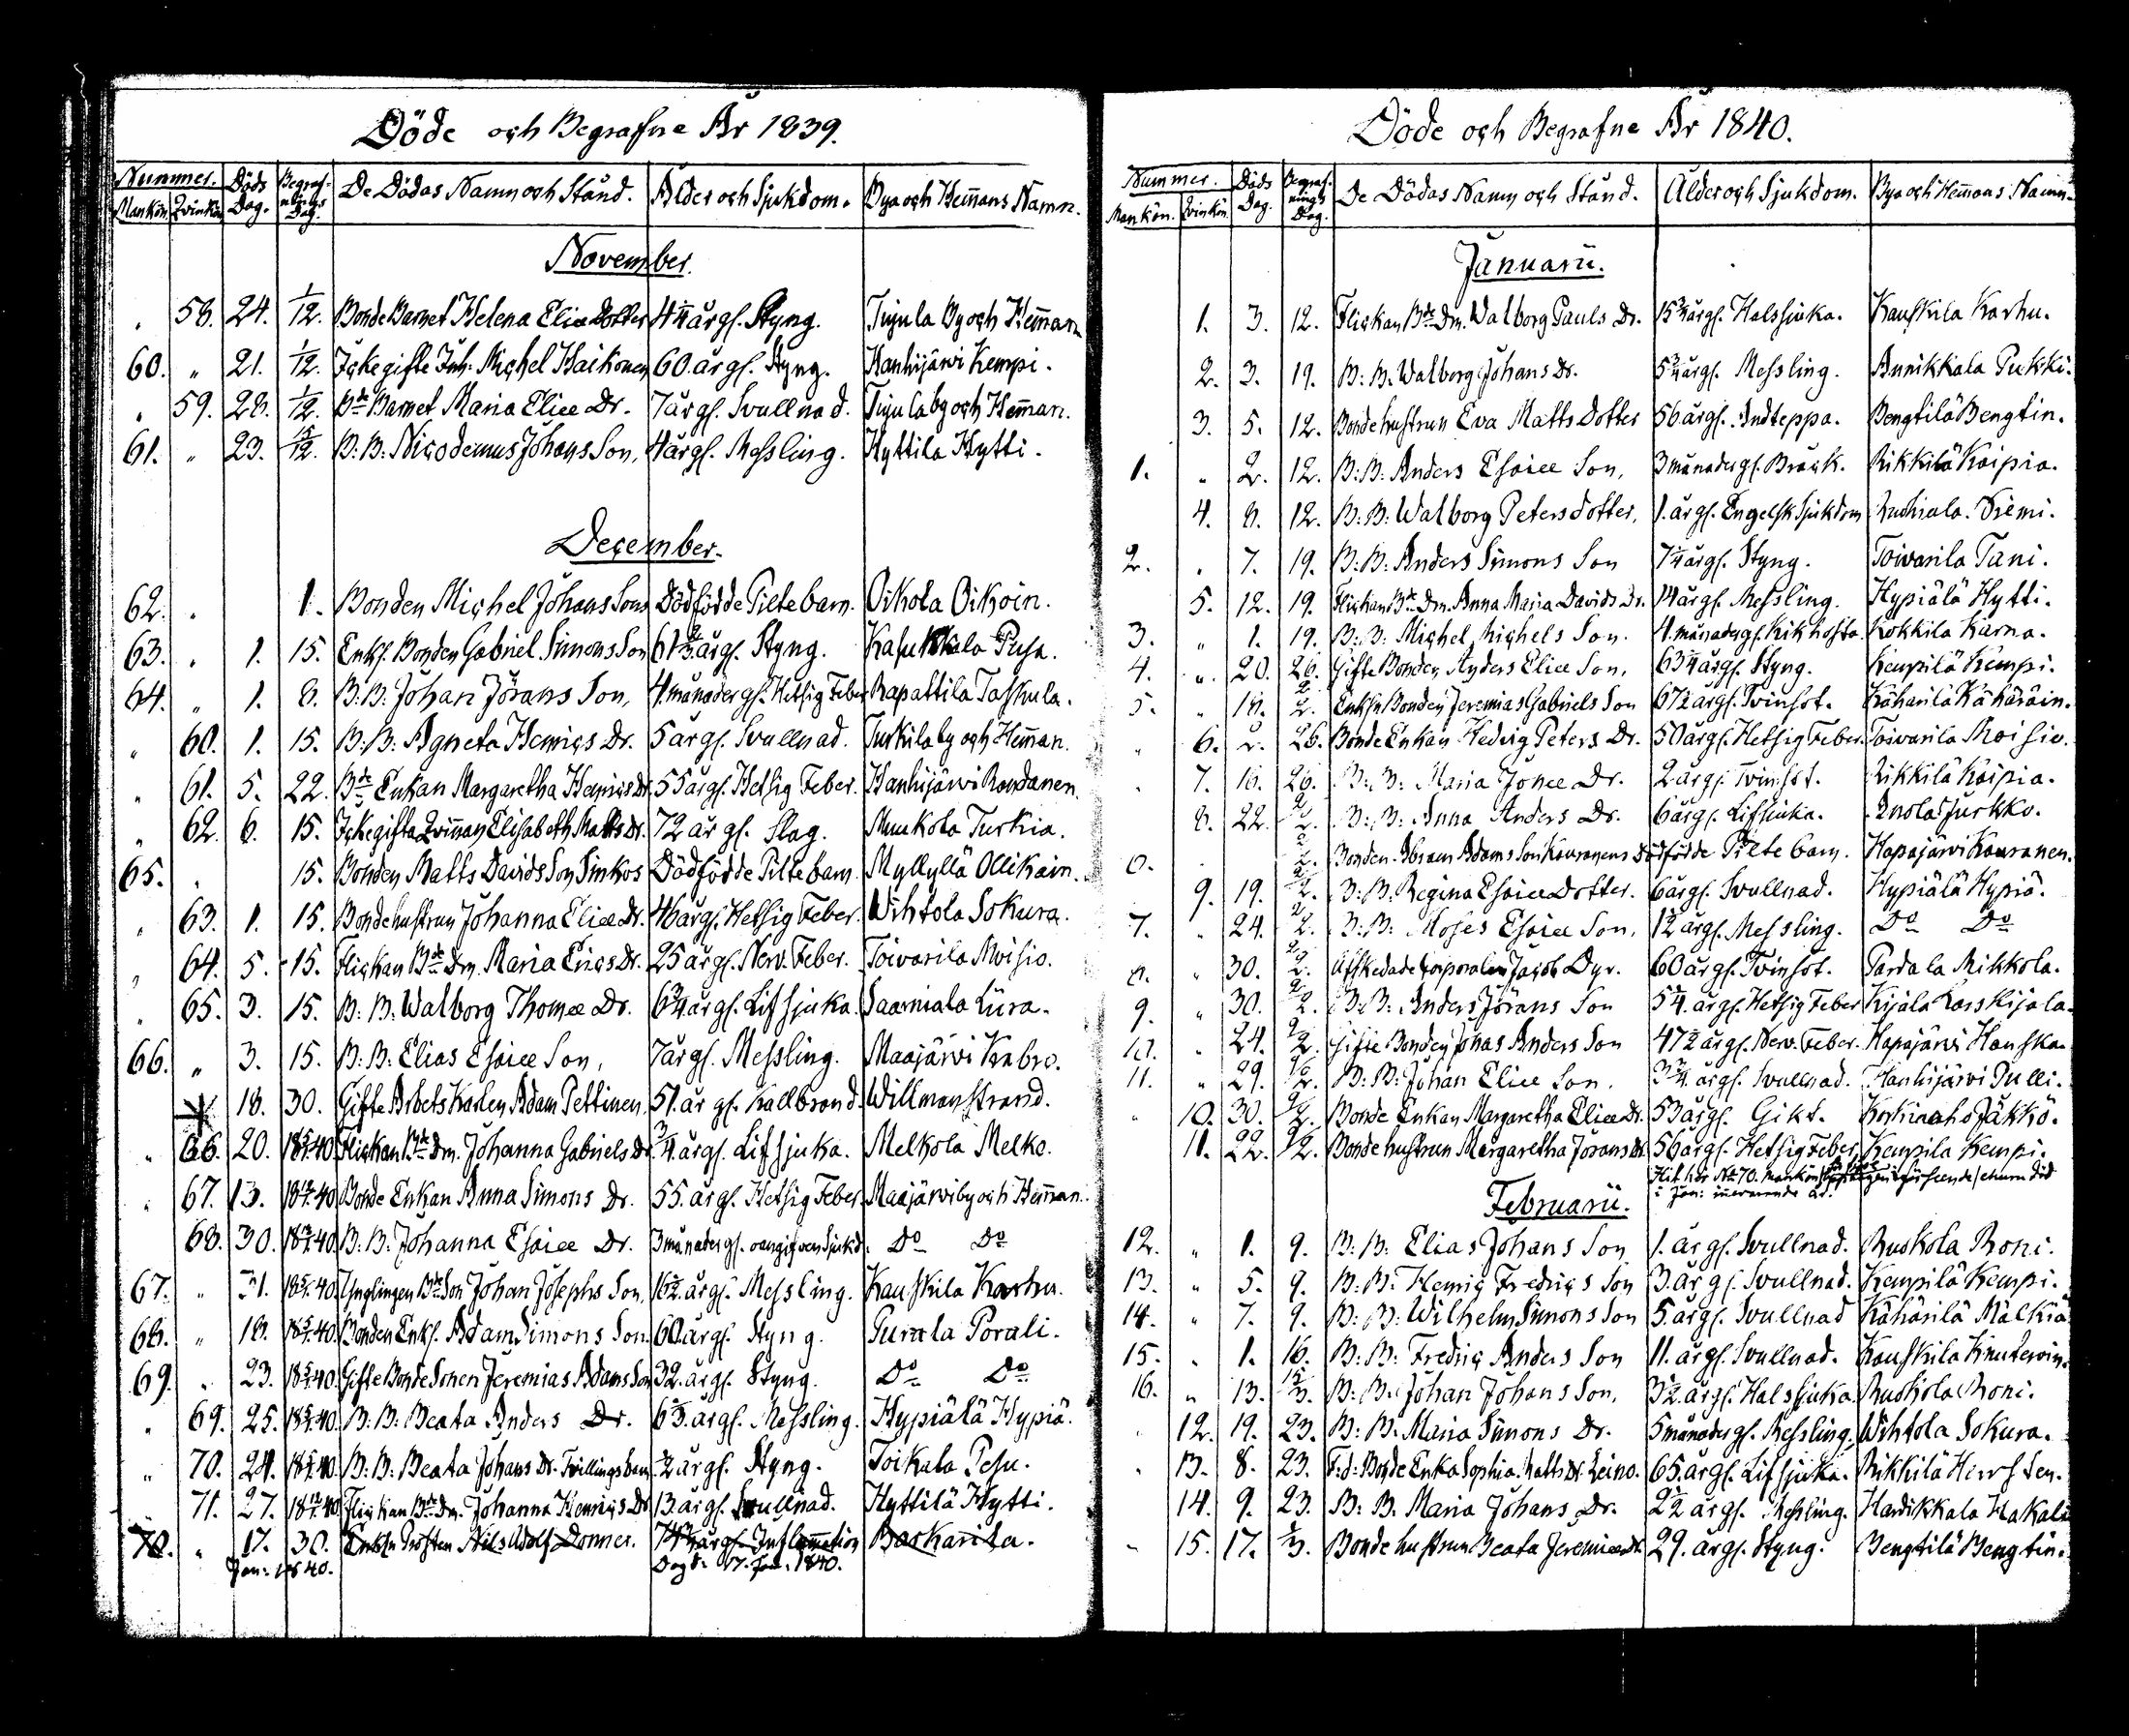 Döde och Begrafne År 1839.
Nummer. Döds Dag. Begrafnings Dag. De Dödas Namn och Stånd. Ålder och Sjukdom. Bya och Hem̄ans Namn.
Mankön. Qvinkön.
November.
58. 24. 1/12. Bonde Barnet Helena Eliæ Dotter 4 1/4 år gl. Styng. Tujula By och Hem̄an
60. " 21. 1/12. Ickegifte Inh. Michel Haikonen 60. år gl. Styng. Hanhijärwi Kempi.
" 59. 28. 1/12. Bde Barnet Maria Eliæ Dr. 7 år gl. Svullnad. Tujula by och Hem̄an.
61. " 23. 15/12. B: B: Nicodemus Johans Son, 4 år gl. Messling. Hyttilä Hytti.
December.
62. " 1. Bonden Michel Johans Sons Dödfödde Piltebarn. Oikola Oikoin.
63. " 1. 15. Enkl. Bonden Gabriel Simons Son 61 år gl. Styng. Kasukkala Pusa.
64. " 1. 8. B. B. Johan Jörans Son, 4. månader gl. Hetsig Feber Rapattila Taskula.
" 60. 1. 15. B: B: Agneta Henrics Dr. 5 år gl. Svullnad. Turkila by och Hem̄an.
" 61. 5. 22. Bde Enkan Margaretha Henrics Dr. 55 år gl. Hetsig Feber. Hanhijärwi Rondanen.
" 62. 6. 15. Ickegifta Qvin̄an Elisabeth Matts Dr. 72 år gl. Slag. Munkola Turkia.
65. " 15. Bonden Matts Davids Son Sinkos Dödfödde Piltebarn. Myllylä Ollikain.
" 63. 1. 15. Bondehustrun Johanna Eliæ Dr. 46 år gl. Hetsig Feber. Wihtola Sokura.
" 64. 5. 15. Flickan Bde Dm. Maria Erics Dr. 25 år gl. Nerv. Feber. Toivarila Moisio.
" 65. 3. 15. B. B. Walborg Thomæ Dr. 6 3/4 år gl. Lifsjuka. Saamiala Liira.
66. " 3. 15. B: B: Elias Esaiæ Son, 7 år gl. Messling. Maajärwi Kebro.
18. 30. Gifte Arbets Karlen Adam Pettinen 51. år gl. Kallbrand. Willmanstrand.
" 66. 20. 18 5/1 40. Flickan Bde Dm. Johanna Gabriels Dr 3/4 år gl. Lifsjuka. Melkola Melko.
" 67. 13. 18 40. Bonde Enkan Anna Simons Dr. 55. år gl. Hetsig Feber Maajärwi by och Hem̄an.
68. 30. 18 40. B: B: Johanna Esaiæ Dr. 3 månader gl. oangifven Sjukd. Do Do
67. " 31. 18 5/1 40. Ynglingen Bde Son Johan Josephs Son, 16 1/2 år gl. Messling. Kauskila Karhu.
68. " 18. 18 5/1 40. Bonden Enkl. Adam Simons Son. 60 år gl. Styng. Purala Porali.
69. " 23. 18 5/1 40. Gifte Bonde Sonen Jeremias Adams Son 32. år gl. Styng. Do Do
" 69. 25. 18 5/1 40. B: B: Beata Anders Dr. 6 år gl. Messling. Hypiälä Hypiä.
" 70. 24. 18 5/1 40. B: B: Beata Johans Dr. Tvillingsbarn 1/2 år gl. Styng. Toikala Pesu.
71. 27. 18 40. Flickan Bde Dm. Johanna Henrics Dr 13. år gl. Svullnad. Hyttilä Hytti.
70. " 17. 30. Enkln Prosten Nils Adolf Donner. 74 år gl. Inflam̄ation Barkarila.
Jan: 1840. Dog d. 17. Jan. 1840.
Döde och Begrafne År 1840.
Nummer. Döds Dag. Begrafnings Dag. De Dödas Namn och Stånd. Ålder och Sjukdom. Bya och Hem̄ans Namn.
Mankön. Qvinkön.
Januarii.
1. 3. 12. Flickan Bde Dm. Walborg Pauls Dr. 15 3/4 år gl. Halssjuka. Kauskila Karhu.
2. 3. 19. B: B. Walborg Johans Dr. 5 3/4 år gl. Messling. Annikkala Pukki.
3. 5. 12. Bondehustrun Eva Matts Dotter 56. år gl. Andteppa. Bengtilä Bengtin.
1. " 2. 12. B: B: Anders Esaiæ Son, 3 månader gl. Bråck. Rikkilä Kaipia.
4. 8. 12. B: B: Walborg Peters Dotter, 1. år gl. Engelsk Sjukdom Niemi.
2. " 7. 19. B: B: Anders Simons Son 7 1/4 år gl. Styng. Toivarila Tani.
5. 12. 19. Flickan Bde Dm. Anna Maria Davids Dr. 14 år gl. Messling. Hypiälä Hytti.
3. " 1. 19. B: B: Michel Michels Son. 4. månader gl. Kikhosta. Kokkila Kärna.
4. " 20. 26. Gifte Bonden Anders Eliæ Son, 63 1/4 år gl. Styng. Kempilä Kempi.
5. " 18. 2/2. Enkln Bonden Jeremias Gabriels Son 67 1/2 år gl. Tvinsot. Kähärilä Kähäräin.
" 6. 2. 26. Bonde Enkan Hedvig Peters Dr. 50 år gl. Hetsig Feber. Toivarila Moisio.
" 7. 16. 26. B: B: Maria Jonæ Dr. 2 år gl. Tvinsot. Rikkilä Kaipia.
8. 22. 2/2. B: B: Anna Anders Dr. 6 år gl. Lifsjuka. Jurkko.
6. 2/2. Bonden Abram Adams Son Kauranens Dödfödde Piltebarn. Hapajärwi Kauranen.
9. 19. 2/2. B: B. Regina Esaiæ Dotter. 6 år gl. Svullnad. Hypiälä Hypiä.
7. " 24. 2/2. B: B: Moses Esaiæ Son, 1 1/2 år gl. Messling. Do Do
8. " 30. 2/2. Afskedade Corporalen Jacob Dyr. 60 år gl. Tvinsot. Pardala Mikkola.
9. " 30. 2/2. B: B: Anders Jörans Son 5 1/4. år gl. Hetsig Feber Kijala Karskijala.
10. " 24. 2/2. Gifte Bonden Jonas Anders Son 47 1/2 år gl. Nerv. Feber. Hapajärwi Hanska.
11. " 29. B: B: Johan Eliæ Son. 3 3/4. år gl. Svullnad. Hanhijärwi Pulli.
" 10. 30. Bonde Enkan Margaretha Eliæ Dr. 53 år gl. Gikt. Korkiaaho Jäkkö.
11. 22. Bondehustrun Margaretha Jörans Dr 56 år gl. Hetsig Feber Kempila Kempi.
Hit hör No 70. Mankön död
i Jan: innevarande år.
Februarii.
12. " 1. 9. B: B: Elias Johans Son 1. år gl. Svullnad. Ruokola Roni.
13. " 5. 9. B: B: Henric Fredrics Son 3. år gl. Svullnad. Kempilä Kempi.
14. " 7. 9. B: B: Wilhelm Simons Son 5. år gl. Svullnad Kähärilä Mälkiä
15. " 1. 16. B: B: Fredric Anders Son 11. år gl. Svullnad. Kauskila Knuterin.
16. " 13. B: B. Johan Johans Son, 3 1/2. år gl. Halssjuka. Ruokola Roni.
" 12. 19. 23. B: B. Maria Simons Dr. 5 månader gl. Messling. Wihtola Sokura.
" 13. 8. 23. F: d: Bonde Enka Sophia Matts Dr. Leino. 65. år gl. Lifsjuka. Rikkilä
14. 9. 23. B: B. Maria Johans Dr. 2 1/2 år gl. Messling. Hardikkala Hakali
" 15. 17. 1/3. Bondehustrun Beata Jeremiæ Dr. 29. år gl. Styng. Bengtilä Bengtin.